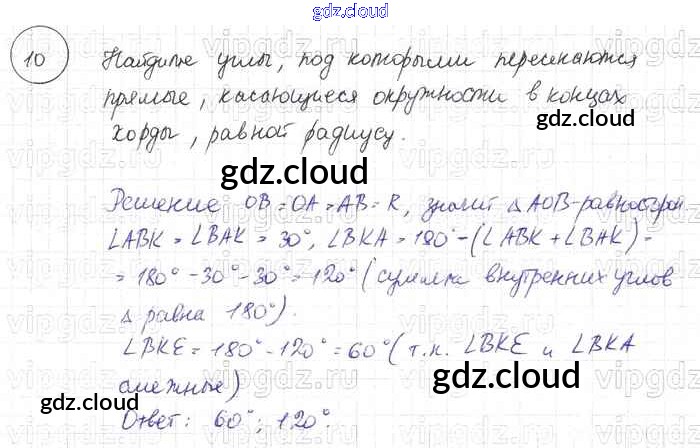 gdz.cloud
10 Найдите углы, под которыми пересекаются
прямые, касающиеся окружности в концах
gdz.cloud
хорды, равной радиусу.
gdz.cloud
Решение: OB=OA=AB=R, значит ΔAOB-равносторон
∠ABK=∠BAK=30°, ∠BKA=180°-(∠ABK+∠BAK)=
=180°-30°-30°=120° (сумма внутренних углов
Δ равна 180°).
∠BKE=180°-120°=60° (т.к. ∠BKE и ∠BKA
смежные)
gdz.cloud
gdz.cloud
Ответ: 60°; 120°.